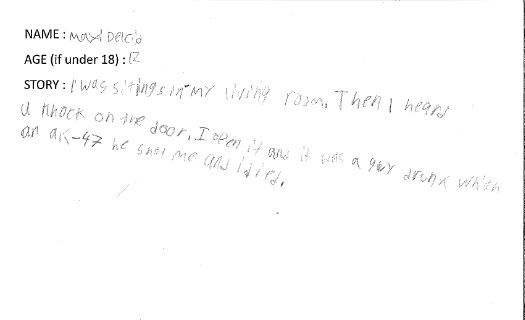 NAME : Maxi Delcid
AGE (if under 18) : 12
STORY : I was sitings in my living room. Then I heard
a knock on the door. I open it and it was a guy drunk whith
an aK-47 he shot me and I died.